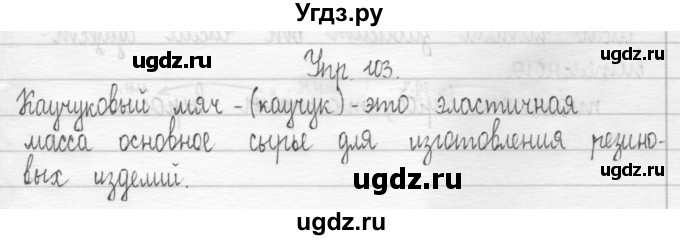 Угдз.ру
ugdz.ru ugdz.ru
Упр. 103.
Каучуковый мяч - (каучук) - это эластичная
ugdz.ru ugdz.ru
масса основное сырье для изготовления резино-
вых изделий.
ugdz.ru ugdz.ru
ugdz.ru